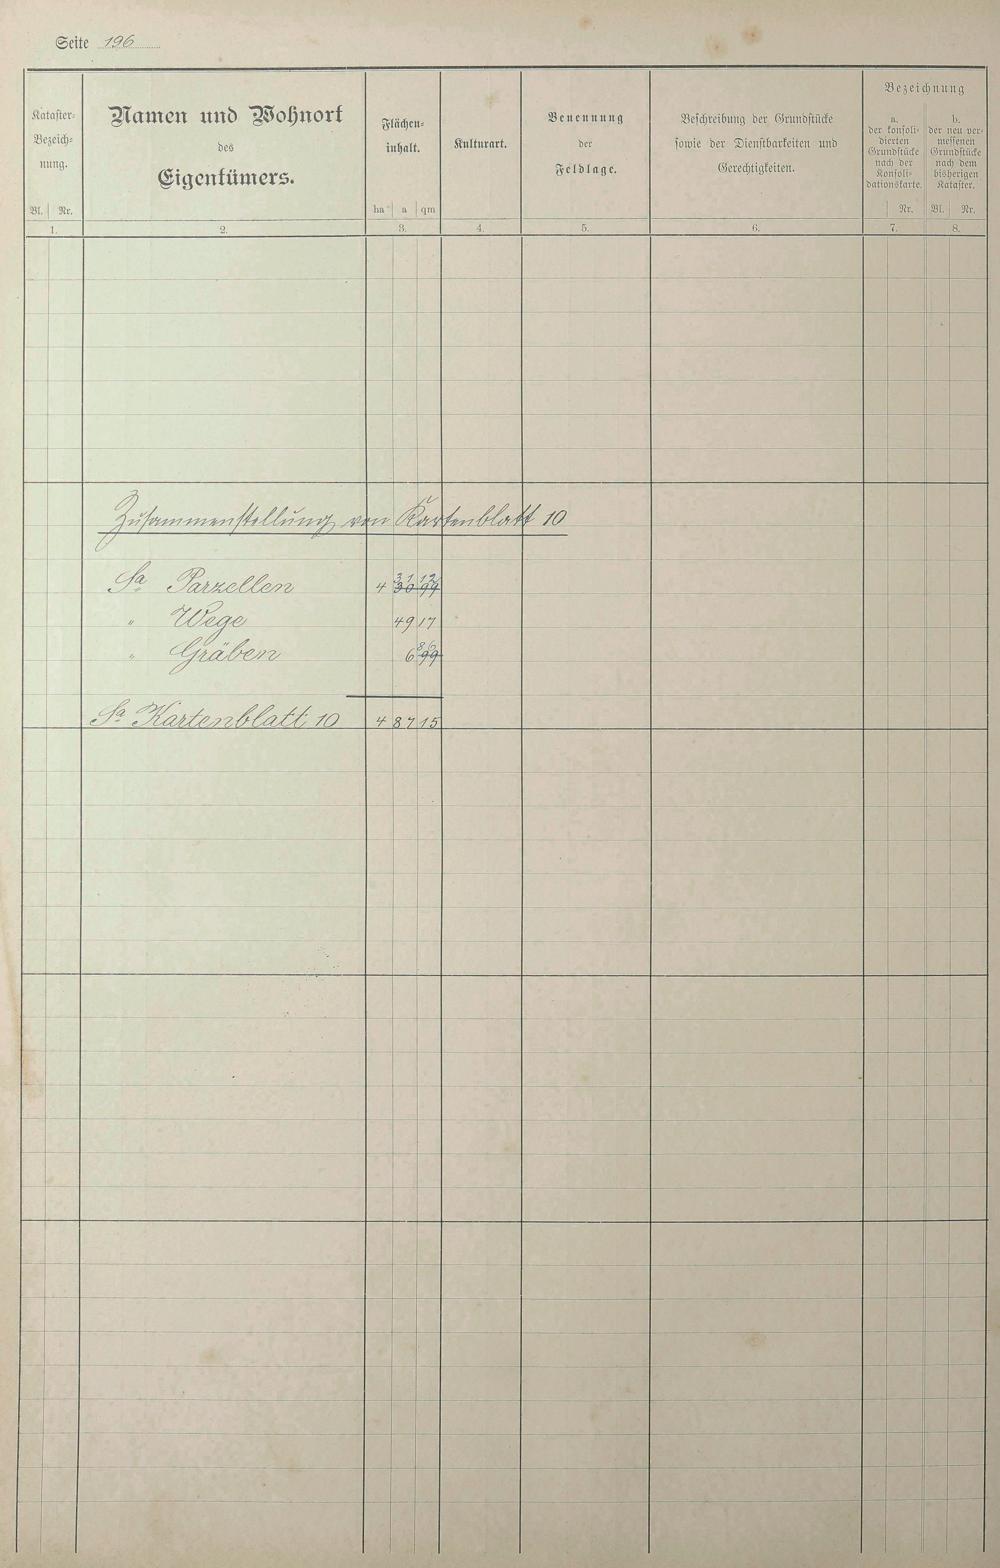 Seite 196
Kataster-
Bezeich-
nung.
Bl. Nr.
1.
Namen und Wohnort
des
Eigentümers.
2.
Flächen-
inhalt.
ha a qm
3.
Kulturart.
4.
Benennung
der
Feldlage.
5.
Beschreibung der Grundstücke
sowie der Dienstbarkeiten und
Gerechtigkeiten.
6.
Bezeichnung
a.
der konsoli-
dierten
Grundstücke
nach der
Konsoli-
dationskarte.
Nr.
7.
b.
der neu ver-
messenen
Grundstücke
nach dem
bisherigen
Kataster.
Bl. Nr.
8.
Zusammenstellung von Kartenblatt 10
31 12
Sa Parzellen 4 30 99
" Wege 49 17
86
" Gräben 6 99
Sa Kartenblatt 10 4 87 15